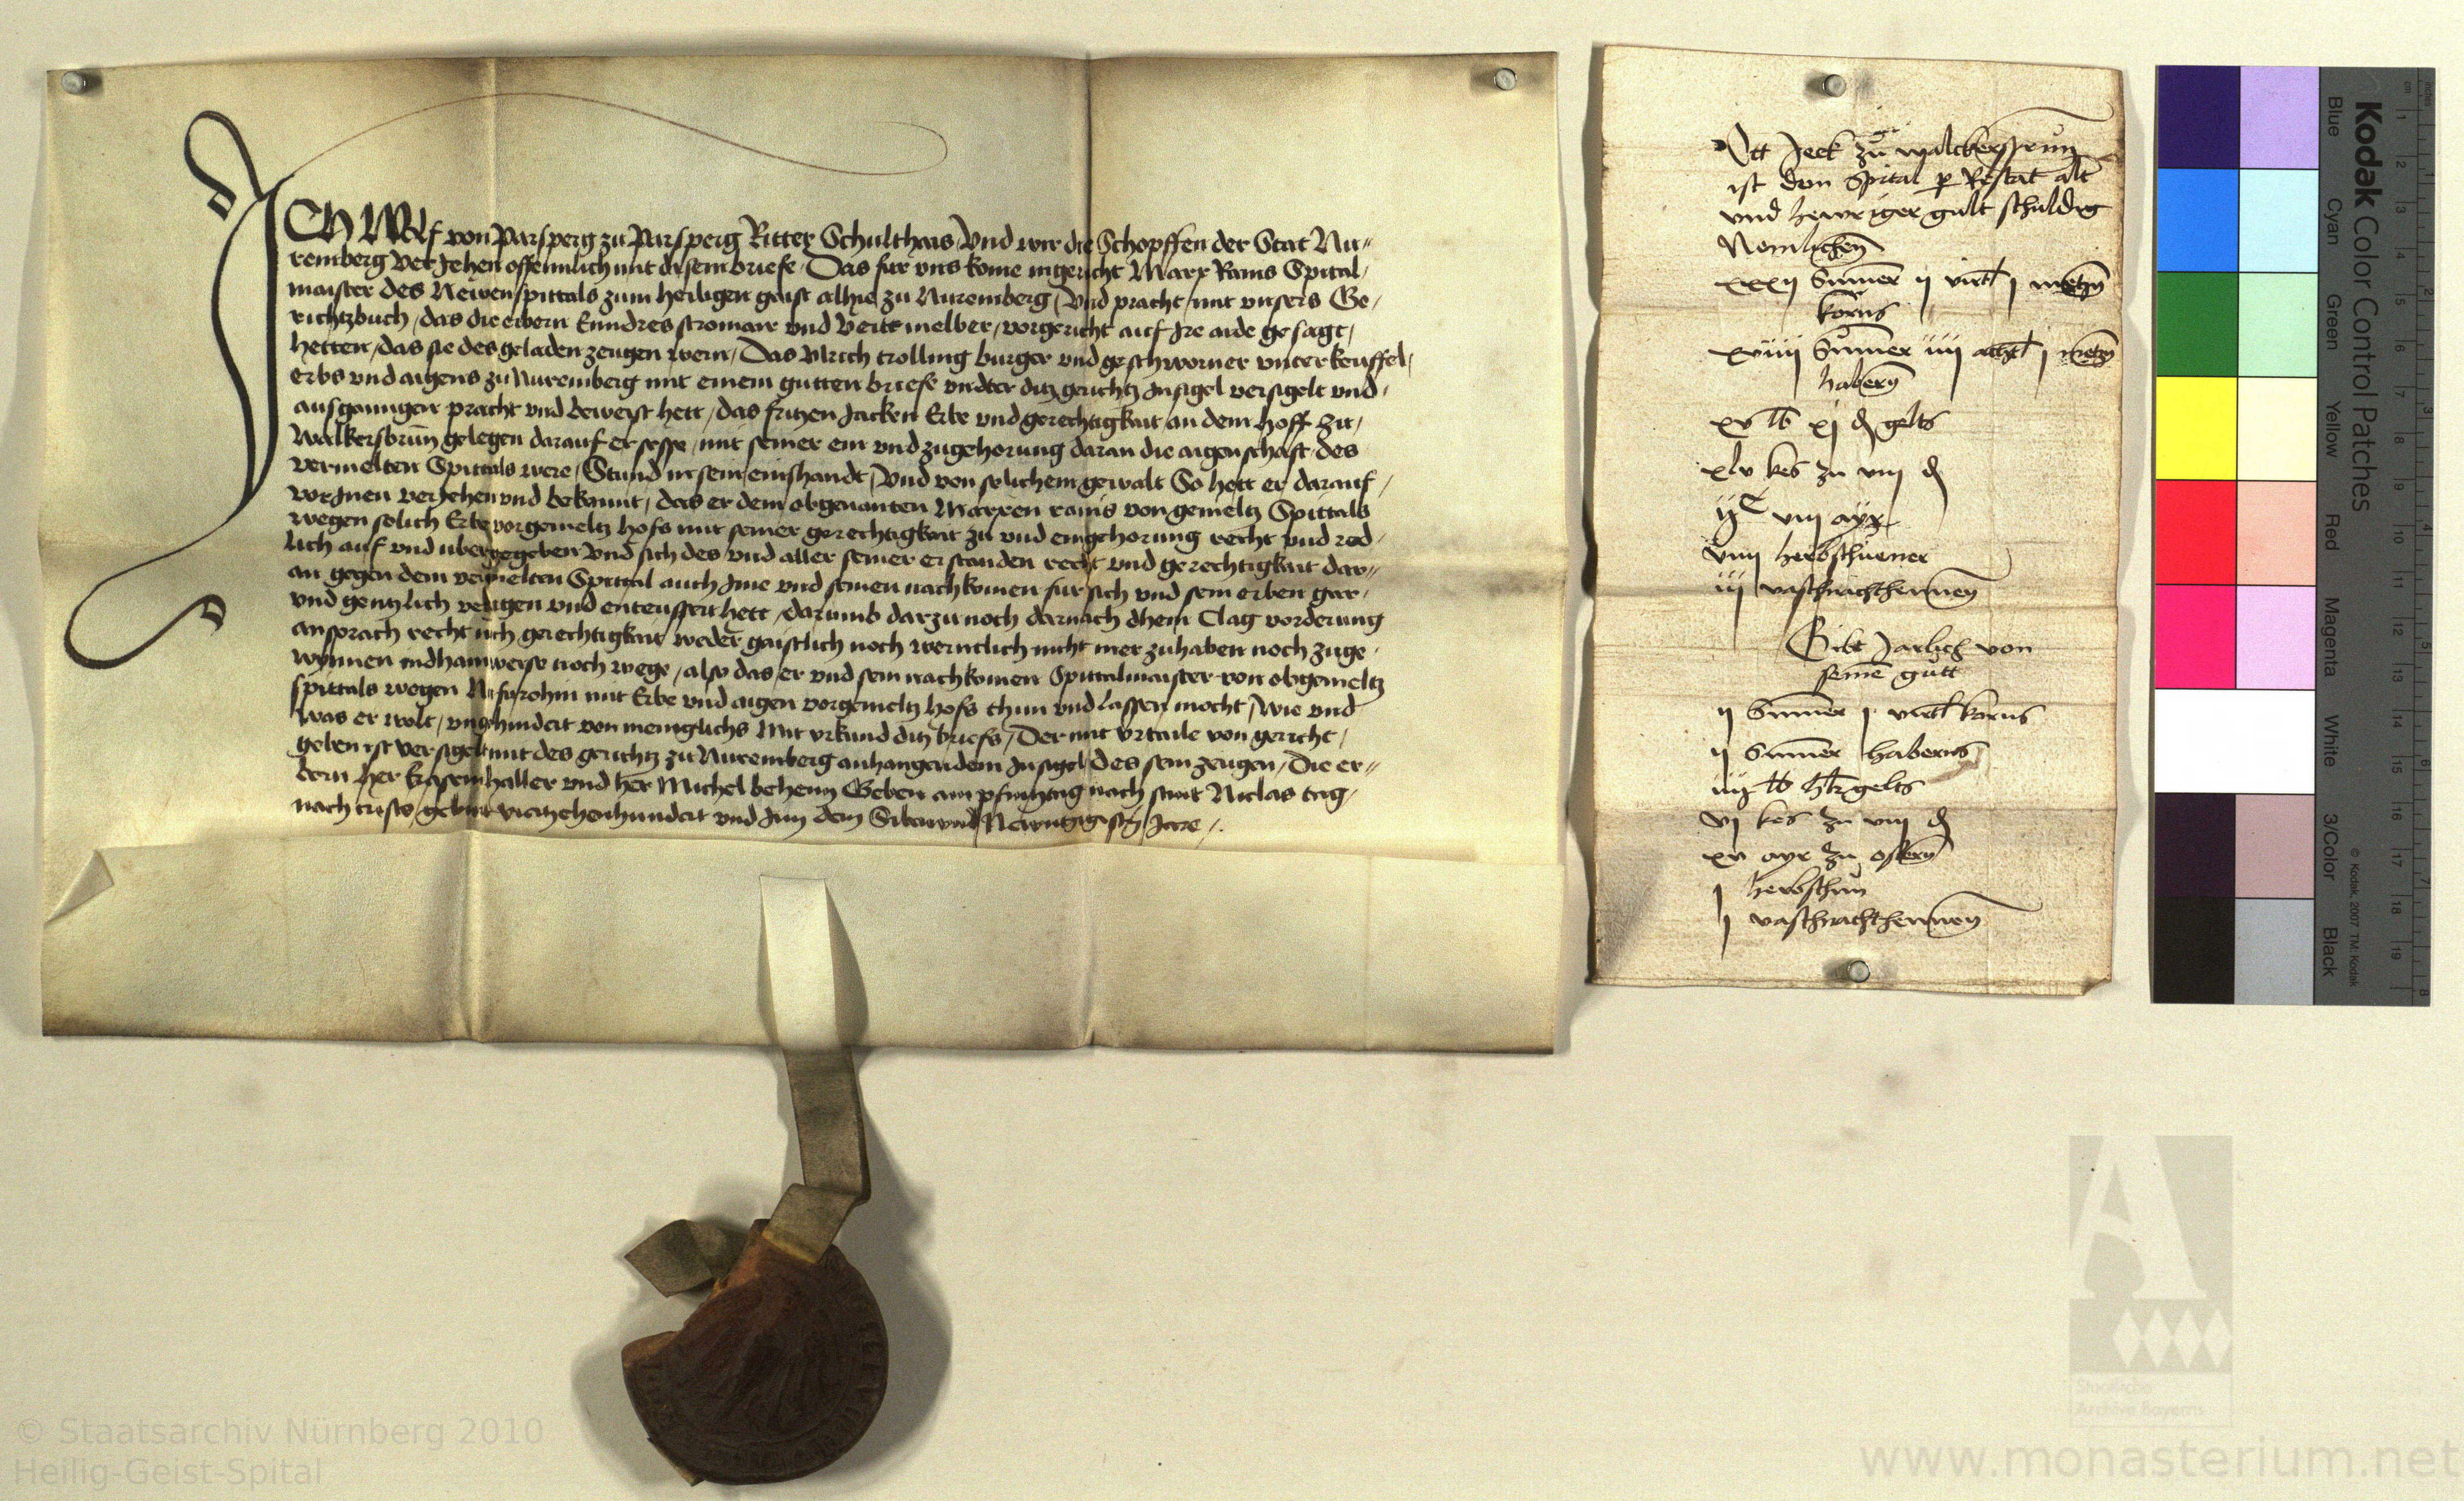 ICH Wolf von Parsperg zu Parsperg Ritter Schulthais Vnd wir die Schopffen der Stat Nu-
remberg Veriehen offennlich mit disem briefe, Das fur vns kome in gericht Marx Rains Spital,
maister des Newen spittals zum heiligen gaist alhie zu Nuremberg, Vnd pracht mit vnsers Ge,
richtzbuch, das die erbern Enndres stromair vnd Veitt melber, vor gericht auf Ire aide gesagt,
hetten, das sie des geladen zeugen wern, Das Vlrich trolling burger vnd geschworner vnterkeuffel,
erbs vnd aigens zu Nuremberg mit einem gutten briefe vndter ditz gerichtz Insigel versigelt vnd,
ausgangen pracht vnd beweist hett, das fritzen Jacken Erbe vnd gerechtigkait an dem hoff zu,
Walkersbrun gelegen darauf er sesse, mit seiner ein vnd zugehorung daran die aigenschaft des
vermelten Spittals were, Stund in sein einshandt, Vnd von solichem gewalt So hett er darauf,
vor Inen veriehen vnd bekannt, das er dem obgenanten Marxen rains von gemeltz Spittals
wegen solich Erbe vorgemeltz hofs mit seiner gerechtigkait zu vnd eingehorung recht vnd red,
lich auf vnd ubergegeben Vnd sich des vnd aller seiner erstanden recht vnd gerechtigkait dar-
an gegen dem vermelten Spittal auch Ime vnd seinen nachkomen fur sich vnd sein erben gar,
vnd gentzlich verzigen vnd enteussert hett, darumb darzu noch darnach dhein Clag vorderung
ansprach recht noch gerechtigkait weder gaistlich noch werntlich nicht mer zuhaben noch zuge,
wynnen in dhain weise noch wege, also das er vnd sein nachkomen Spittalmaister von obgemeltz
spittals wegen Nu furohin mit Erbe vnd aigen vorgemeltz hofs thun vnd lassen mocht, Wie vnd
was er wolt, vngehindert von meniglichs Mit vrkund ditz briefs, Der mit vrtaile von gericht,
geben ist versigelt mit des gerichtz zu Nuremberg anhangendem Insigel des sein zeugen, Die er-
bern her haller vnd her Michel beheim Geben am pfintztag nach sant Niclas tag,
nach cristi geburt vierzehenhundert vnd Im dem Siben vnd Newntzigisten Jare,
Ott Jeck zu walckerssprun
ist dem Spital p Restat alt
vnd hewriger gult schuldig
Nemlichen
xxxij Sumer ij virtl j metzn
korns
xviiij Sumer iiij achtl j metzn
habern
xv lb xj d gelts
xlv kes zu viij d
ij C viij ayr
viiij herbsthuener
iij vastnachthennen
Gibt Jarlich von
seinem gutt
ij Sumer j virtl korns
ij Sumer haberns
iiij lb hlr gelts
vj kes zu viij d
xv ayr zu ostern
j herbsthun
j vastnachthennen
Kodak Color Control Patches
Blue Cyan Green Yellow Red Magenta White 3/Color Black
© Kodak, 2007 TM: Kodak
© Staatsarchiv Nürnberg 2010
Heilig-Geist-Spital
Staatliche
Archive Bayerns
www.monasterium.net